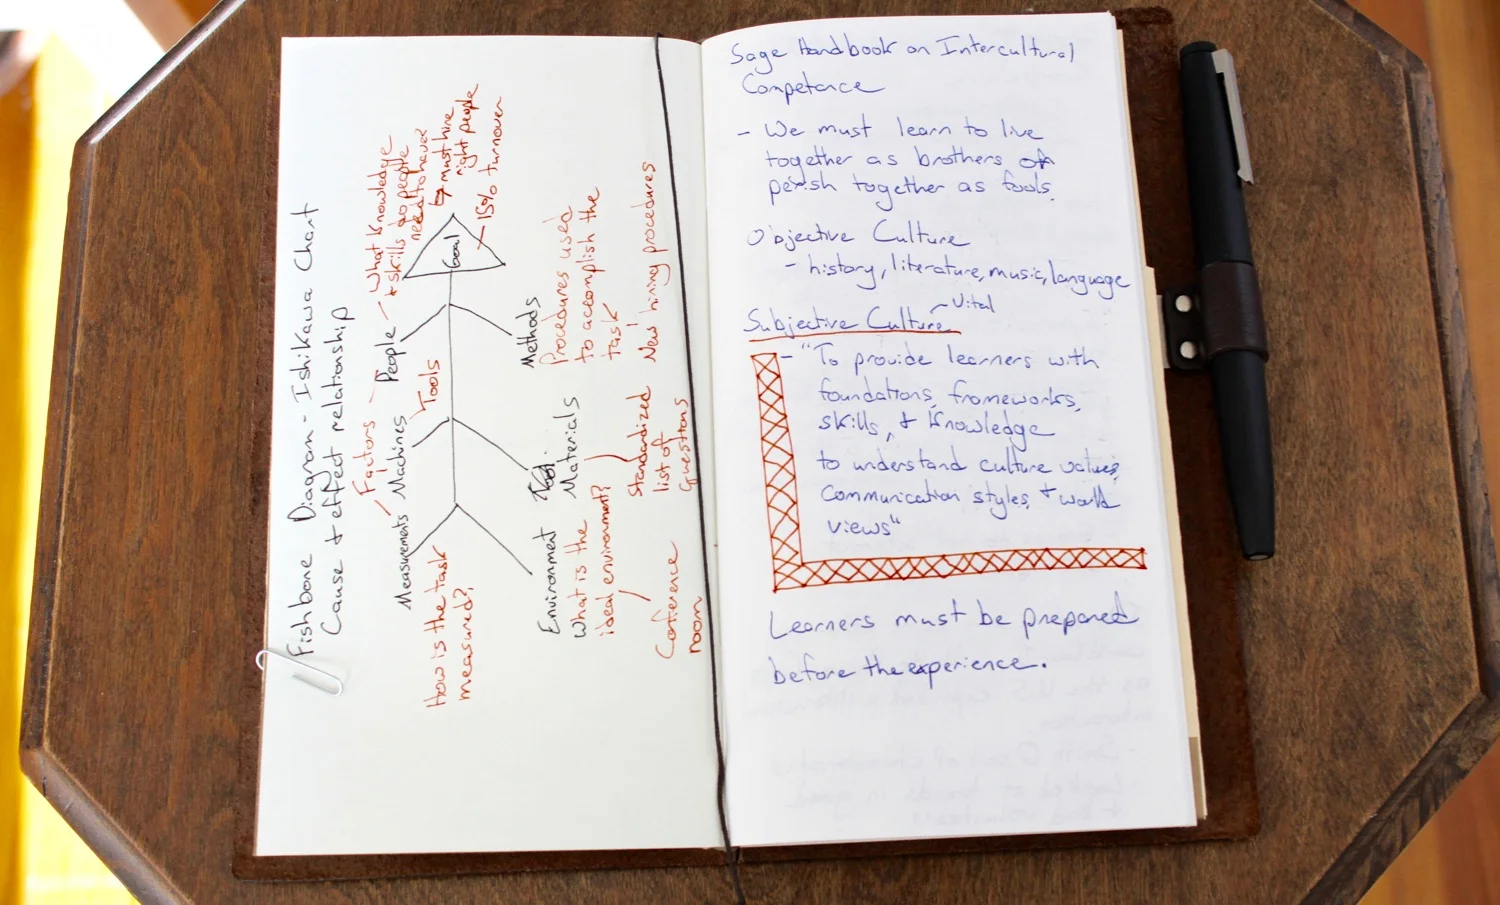 Fishbone Diagram - Ishikawa Chart
Cause & effect relationship
Factors
Measurements
Machines
People
How is the task
measured?
Tools
what knowledge
& skills do people
need to have?
must hire
right people
Goal
15% turnover
Environment
Materials
Methods
What is the
ideal environment?
Conference
room
Standardized
list of
questions
Procedures used
to accomplish the
task
New hiring procedures
Sage Handbook on Intercultural
Competence
- We must learn to live
together as brothers or
perish together as fools.
Objective Culture
- history, literature, music, language
Subjective Culture ~ Vital
- "To provide learners with
foundations, frameworks,
skills, & knowledge
to understand culture values,
communication styles, & world
views"
Learners must be prepared
before the experience.